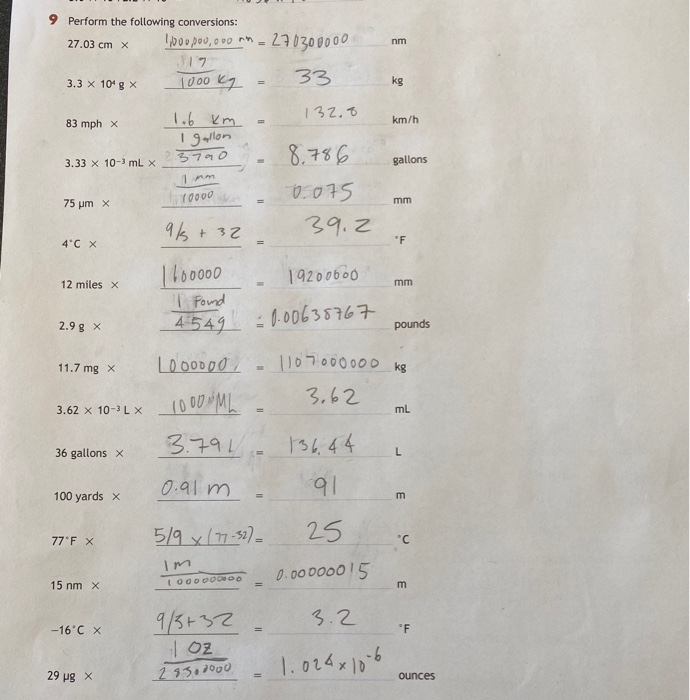 9 Perform the following conversions:
27.03 cm × 1,000,000,000 nm = 270300000 nm
3.3 × 10⁴ g × 1g / 1000 kg = 33 kg
83 mph × 1.6 km = 132.8 km/h
3.33 × 10⁻³ mL × 1 gallon / 3790 = 8.786 gallons
75 µm × 1 mm / 10000 = 0.075 mm
4°C × 9/5 + 32 = 39.2 °F
12 miles × 1600000 = 19200000 mm
2.9 g × 1 Pound / 454g = 0.00638767 pounds
11.7 mg × 1000000 = 1107000000 kg
3.62 × 10⁻³ L × 1000 ML = 3.62 mL
36 gallons × 3.79 L = 136.44 L
100 yards × 0.91 m = 91 m
77°F × 5/9 × (77-32) = 25 °C
15 nm × 1m / 1000000000 = 0.00000015 m
−16°C × 9/5+32 = 3.2 °F
29 µg × 1 OZ = 1.024 × 10⁻⁶ ounces